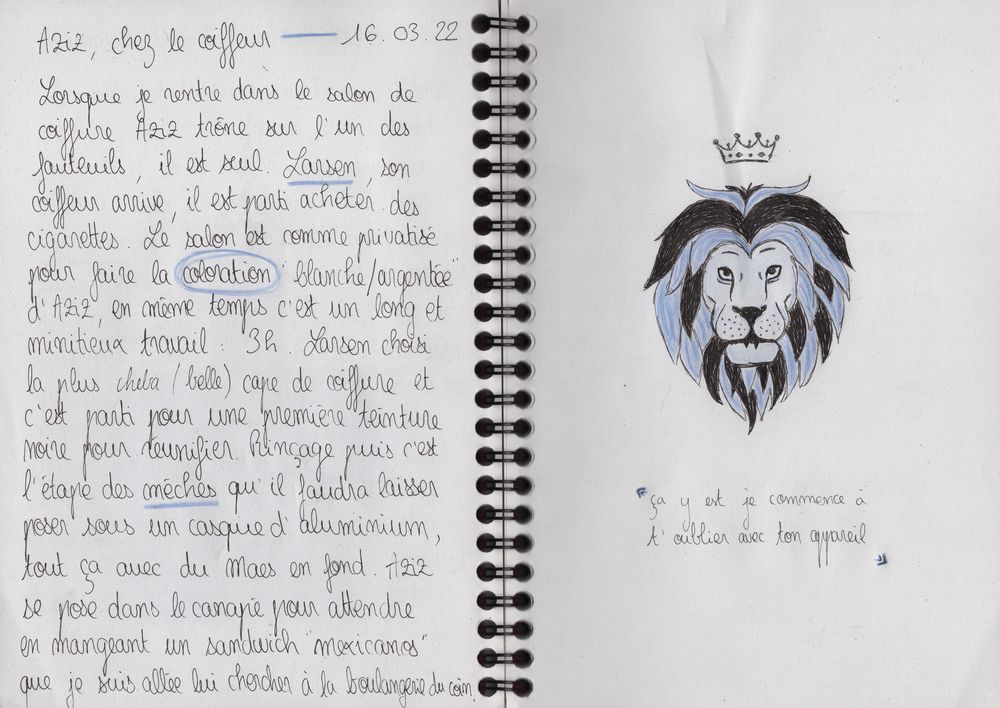 Aziz, chez le coiffeur — 16.03.22
Lorsque je rentre dans le salon de
coiffure Aziz trône sur l'un des
fauteuils, il est seul. Larsen, son
coiffeur arrive, il est parti acheter des
cigarettes. Le salon est comme privatisé
pour faire la coloration "blanche/argentée"
d'Aziz, en même temps c'est un long et
minitieux travail : 3h. Larsen choisi
la plus cheba (belle) cape de coiffure et
c'est parti pour une première teinture
noire pour réunifier. Rinçage puis c'est
l'étape des mèches qu'il faudra laisser
poser sous un casque d'aluminium,
tout ça avec du Maes en fond. Aziz
se pose dans le canapé pour attendre
en mangeant un sandwich "mexicanos"
que je suis allée lui chercher à la boulangerie du coin.
"ça y est je commence à
t'oublier avec ton appareil"